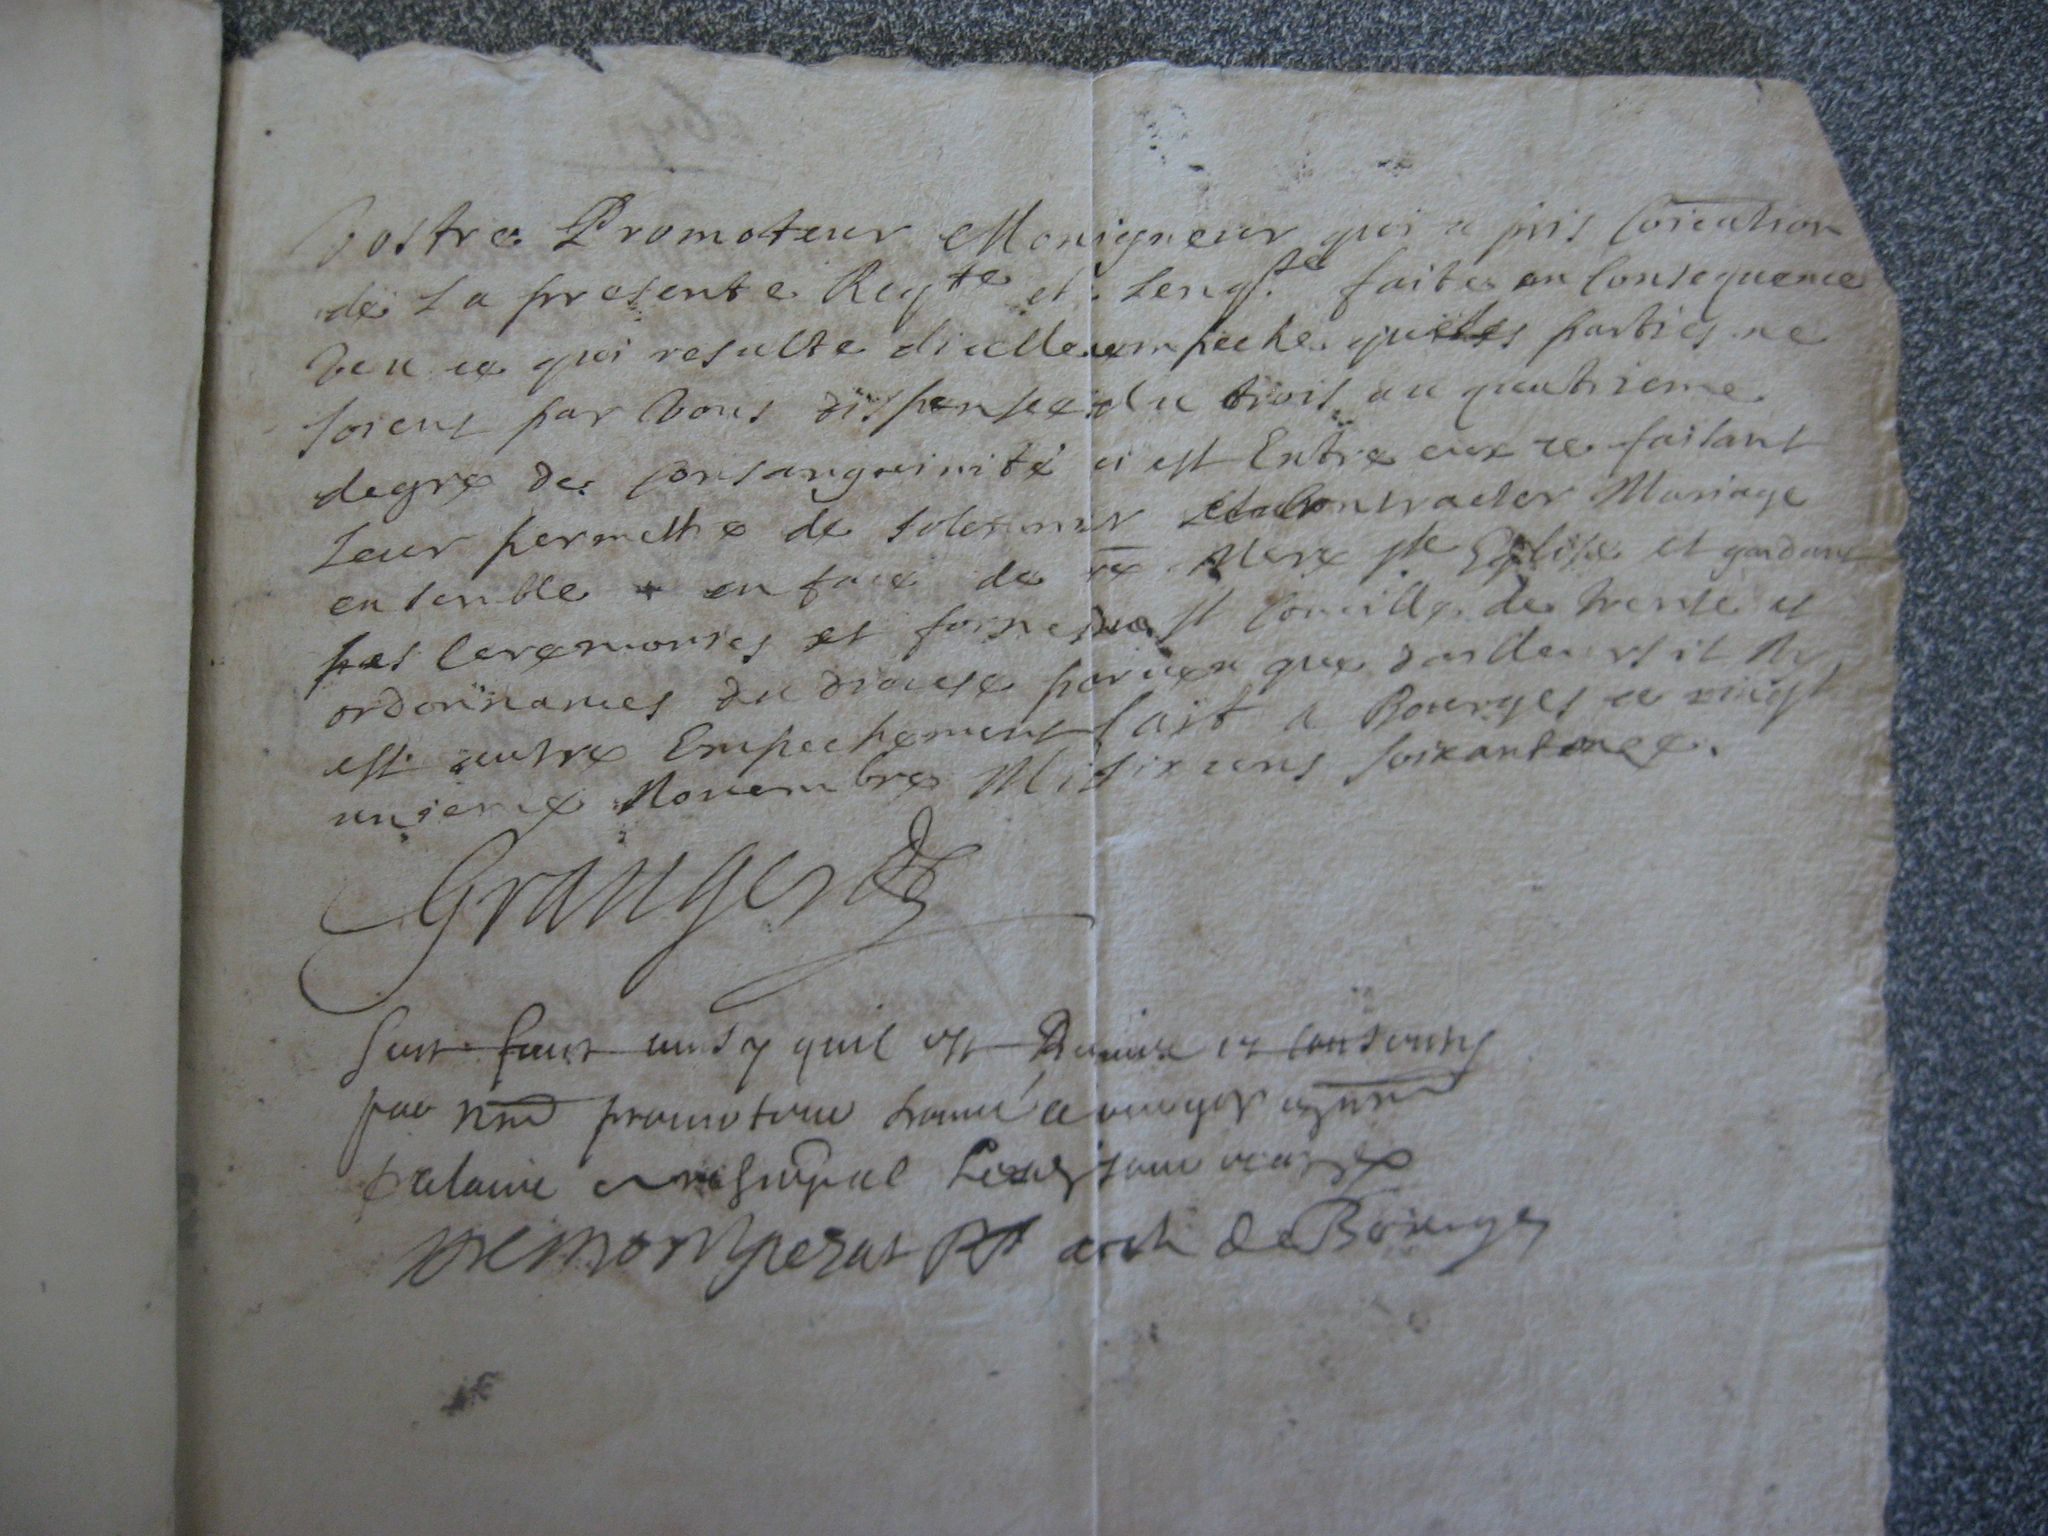 Vostre Promoteur Monsigneur qui a pris Coïcation
de La presente Reqte et Lenqte faite en Consequence
Veu ce qui resulte dicelle empeche que les parties ne
soient par Vous dispensees du trois au quatrieme
degre de Consanguinité et Entre eux ce faisant
Leur permettre de solemniser et Contracter Mariage
ensemble en face de nre Mere ste Eglise et gardant
les Ceremonies et formes du st Concille de trente et
ordonnances du diocese pourveu que dailleurs il ny
est autre Empechement fait a Bourges ce vingt
unieme Novembre Mil six cens soixante
Granger
Soit fait ainsy quil est Requis et consenty
par nre promoteur donné a bourges en nre
palais archiepal Les jour
De Montpezat P arch de Bourges